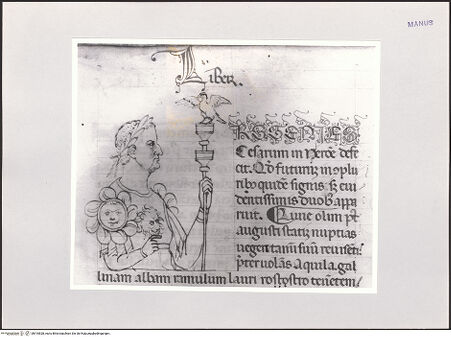 MANUS
Liber
PROGENIES
Cesarum in Nerōe defe
cit. Qđ futurū in oplu
ribȝ quidē signis, sȝ eui
dentissimis duobȝ appa
ruit. Liuie olim pꝰ
augusti statī nuptias
uegentanū suū reuisēti
p̄teruolās Aquila gal
linam albam ramulum lauri rostro tenētem